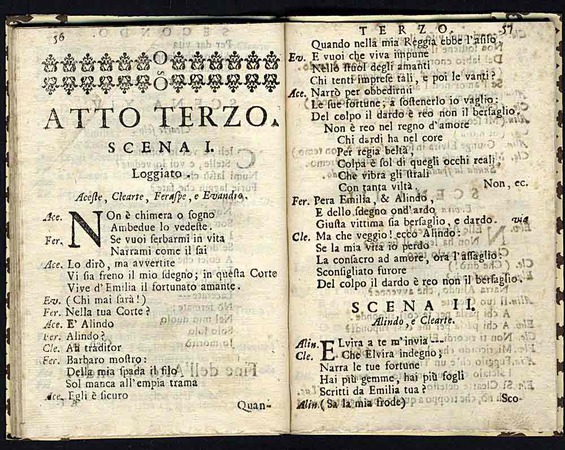 56
ATTO TERZO.
SCENA I.
Loggiato.
Aceste, Clearte, Feraspe, e Evandro.
Ace. NOn è chimera o sogno
Ambedue lo vedeste.
Fer. Se vuoi serbarmi in vita
Narrami come il sai
Ace. Lo dirò, ma avvertite
Vi sia freno il mio sdegno; in questa Corte
Vive d'Emilia il fortunato amante.
Ev. (Chi mai sarà!)
Fer. Nella tua Corte?
Ace. E' Alindo
Fer. Alindo?
Cle. Ah traditor
Fer. Barbaro mostro:
Della mia spada il filo
Sol manca all'empia trama
Ace. Egli è sicuro
Quan-
TERZO. 57
Quando nella mia Reggia ebbe l'asilo.
Ev. E vuoi che viva impune
Nello stuol degli amanti
Chi tentò imprese tali, e poi le vanti?
Ace. Narrò per obbedirmi
Le sue fortune; a sostenerlo io vaglio:
Del colpo il dardo è reo non il bersaglio.
Non è reo nel regno d'amore
Chi dardi ha nel core
Per regia beltà:
Colpa è sol di quegli occhi reali
Che vibra gli strali
Con tanta viltà. Non, ec.
Fer. Pera Emilia, & Alindo,
E dello sdegno ond'ardo
Giusta vittima sia bersaglio, e dardo. via
Cle. Ma che veggio! ecco Alindo:
Se la mia vita io perdo
La consacro ad amore, ora l'assaglio:
Sconsigliato furore
Del colpo il dardo è reo non il bersaglio.
SCENA II.
Alindo, e Clearte.
Alin. ELvira a te m'invia ---
Cle. Che Elvira indegno;
Narra le tue fortune
Hai più gemme, hai più fogli
Scritti da Emilia tua?
Alin. (Sa la mia frode)
Sco-